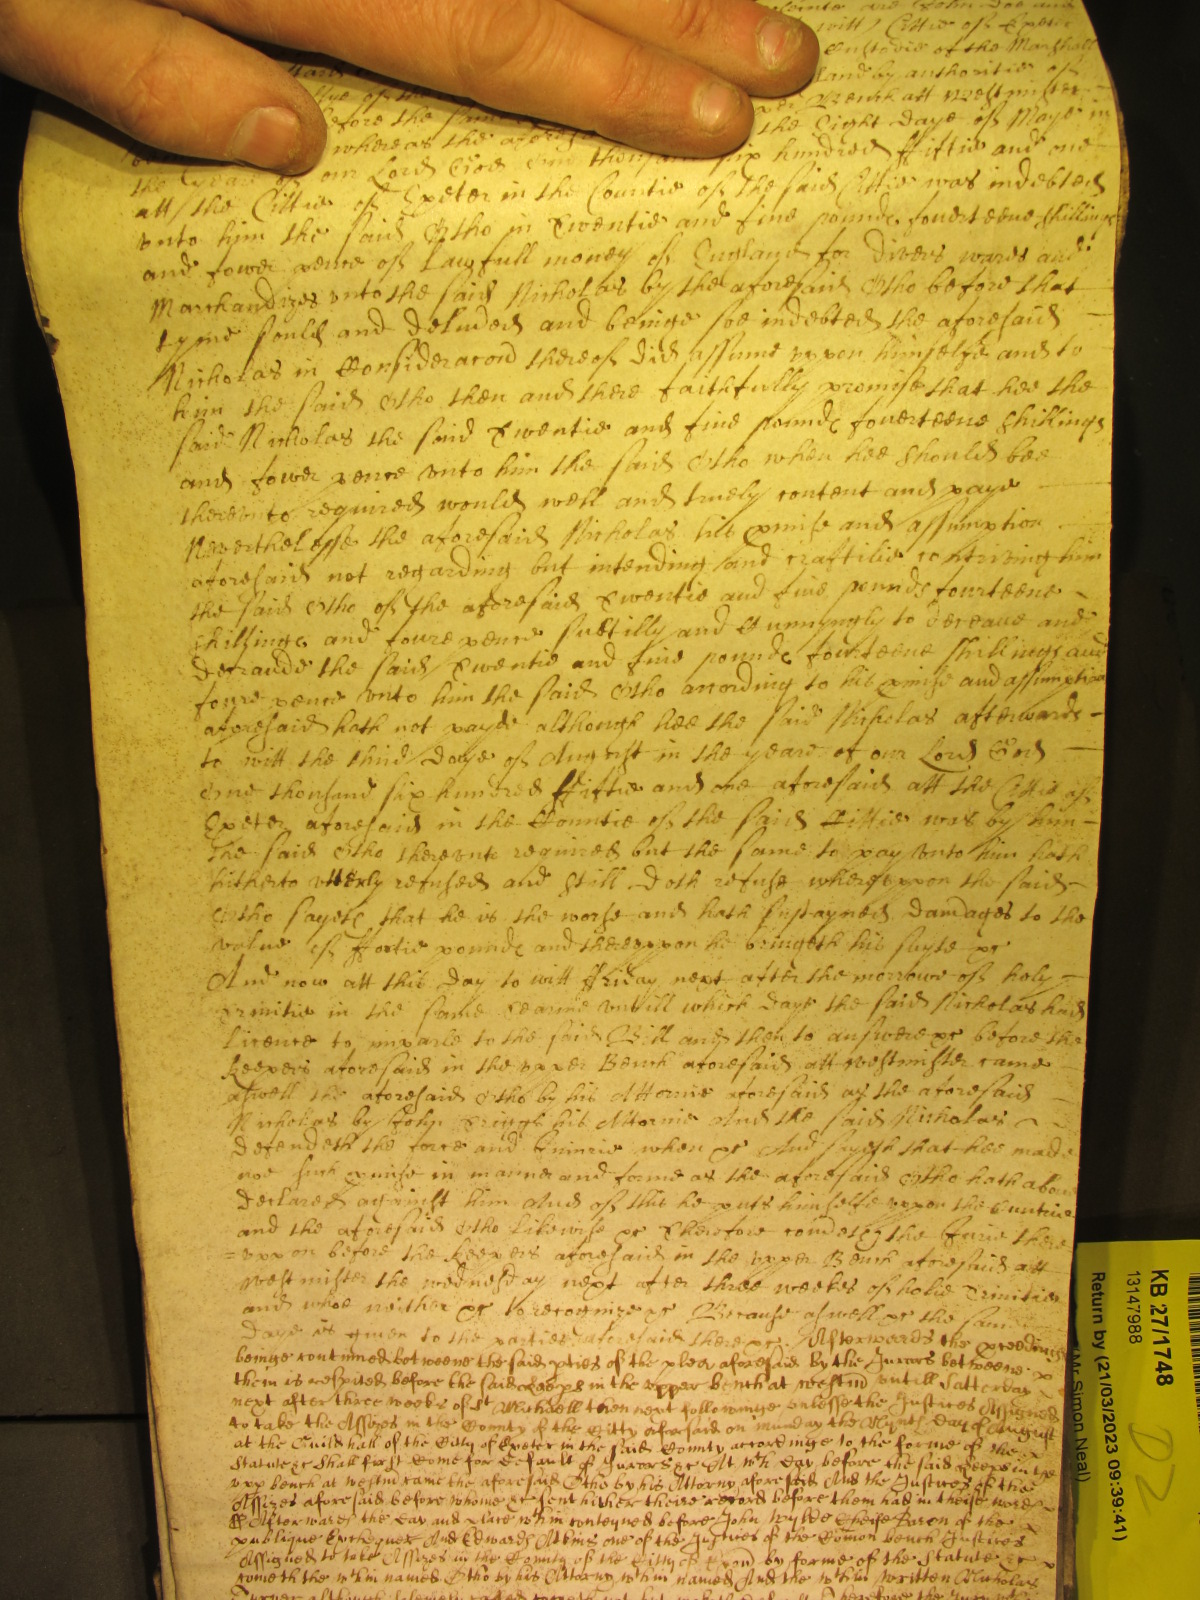 are John Doe and
witt Cittie of Exeter
Custodie of the Marshall
land by authoritie of
Bench att Westminster
before the same the Eight Daye of Maye in
whereas the aforesaid
the yeare of our Lord God One thousand six hundred ffiftie and one
att the Cittie of Exeter in the Countie of the said Cittie was indebted
vnto him the said Otho in Twentie and five pounds fowerteene shillings
and fower pence of Lawfull money of England for divers wares and
Marchandizes vnto the said Nicholas by the aforesaid Otho before that
tyme sould and deliuered and beinge soe indebted the aforesaid
Nicholas in Consideracion thereof did assume vppon himselfe and to
him the said Otho then and there faithfully promise that hee the
said Nicholas the said Twentie and five pounds fowerteene shillings
and fower pence vnto him the said Otho when hee should bee
therevnto required would well and truely content and paye
Neverthelesse the aforesaid Nicholas his pmise and assumption
aforesaid not regarding but intending and craftilie contriving him
the said Otho of the aforesaid Twentie and five pounds fourteene
shillings and foure pence subtilly and Cunningly to deceave and
defraude the said Twentie and five pounds fourteene shillings and
foure pence vnto him the said Otho according to his pmise and assumption
aforesaid hath not payde although hee the said Nicholas afterwards
to witt the third Daye of August in the yeare of our Lord God
One thousand six hundred ffiftie and one aforesaid att the Cittie of
Exeter aforesaid in the Countie of the said Cittie was by him
the said Otho therevnto required but the same to pay vnto him hath
hitherto vtterly refused and still doth refuse wherevppon the said
Otho sayeth that he is the worse and hath sustayned damages to the
value of ffortie pounds and therevppon he bringeth his suyte &c
And now att this day to witt ffriday next after the morrowe of holy
Trinitie in the same Tearme vntill which daye the said Nicholas had
licence to imparle to the said Bill and then to answere &c before the
keepers aforesaid in the vpper Bench aforesaid att Westminster came
aswell the aforesaid Otho by his Attornie aforesaid as the aforesaid
Nicholas by John his Attornie And the said Nicholas
defendeth the force and Iniurie when &c And sayeth that hee made
noe such pmise in manner and forme as the aforesaid Otho hath above
declared against him And of this he puts himselfe vppon the Cuntrie
and the aforesaid Otho likewise &c Therefore cometh the Iurie there
=vppon before the keepers aforesaid in the vpper Bench aforesaid att
Westminster the wednesday next after three weekes of holie Trinitie
and whoe neither &c to recognize &c Because aswell &c the same
Daye is given to the parties aforesaid there &c Afterwards the pceedings
beinge continued betweene the said pties of the plea aforesaid By the Jurors betweene
them is respited before the said keeps in the vpper bench at westm vntill Satterday
next after three weeks of St Michaell then next followinge vnlesse the Justices Assigned
to take the Assizes in the County of the Citty aforesaid on Munday the Nynth Day of August
at the Guildhall of the Citty of Exeter in the said County accordinge to the forme of the
Statute &c shall first Come for default of Jurors &c At wch day before the said keeps in the
vpp bench at westm came the aforesaid Otho by his Attorny aforesaid And the Justices of the
Assizes aforesaid before whome &c sent hither theire record before them had in theise words
ss Afterwards the day and place wthin conteyned before John Wylde Cheife Baron of the
publique Exchequer And Edward Atkins one of the Justices of the Comon bench Justices
Assigned to take Assizes in the County of the Citty of Exon by forme of the Statute &c
cometh the wthin named Otho by his Attorny wthin named And the wthin written Nicholas
KB 27/1748
13147988
Return by (21/03/2023 09:39:41)
(Mr Simon Neal)
D2